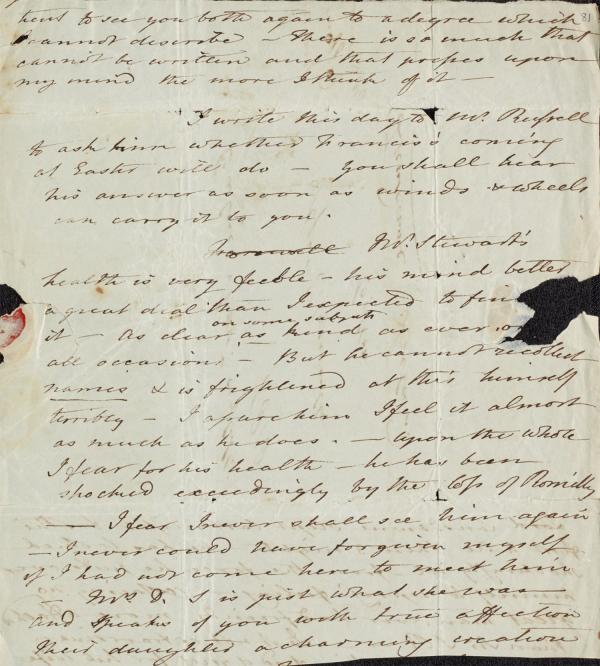 81
to see you both again to a degree which
I cannot describe - There is so much that
cannot be written and that presses upon
my mind the more I think of it -
I write this day to Mr. Russell
to ask him whether Francis's coming
at Easter will do - you shall hear
his answer as soon as winds & wheels
can carry it to you.
Mr. Stewart's
health is very feeble - his mind better
a great deal than I expected to fin
on some subjects
it - As clear as kind as ever on
all occasions - But he cannot recollect
names & is frightened at this himself
terribly - I assure him I feel it almost
as much as he does. - upon the whole
I fear for his health - he has been
shocked exceedingly by the loss of Romilly
- I fear I never shall see him again
- I never could have forgiven myself
if I had not come here to meet him
- Mrs. D. S is just what she was
and speaks of you with true affection
Their daughter a charming creation